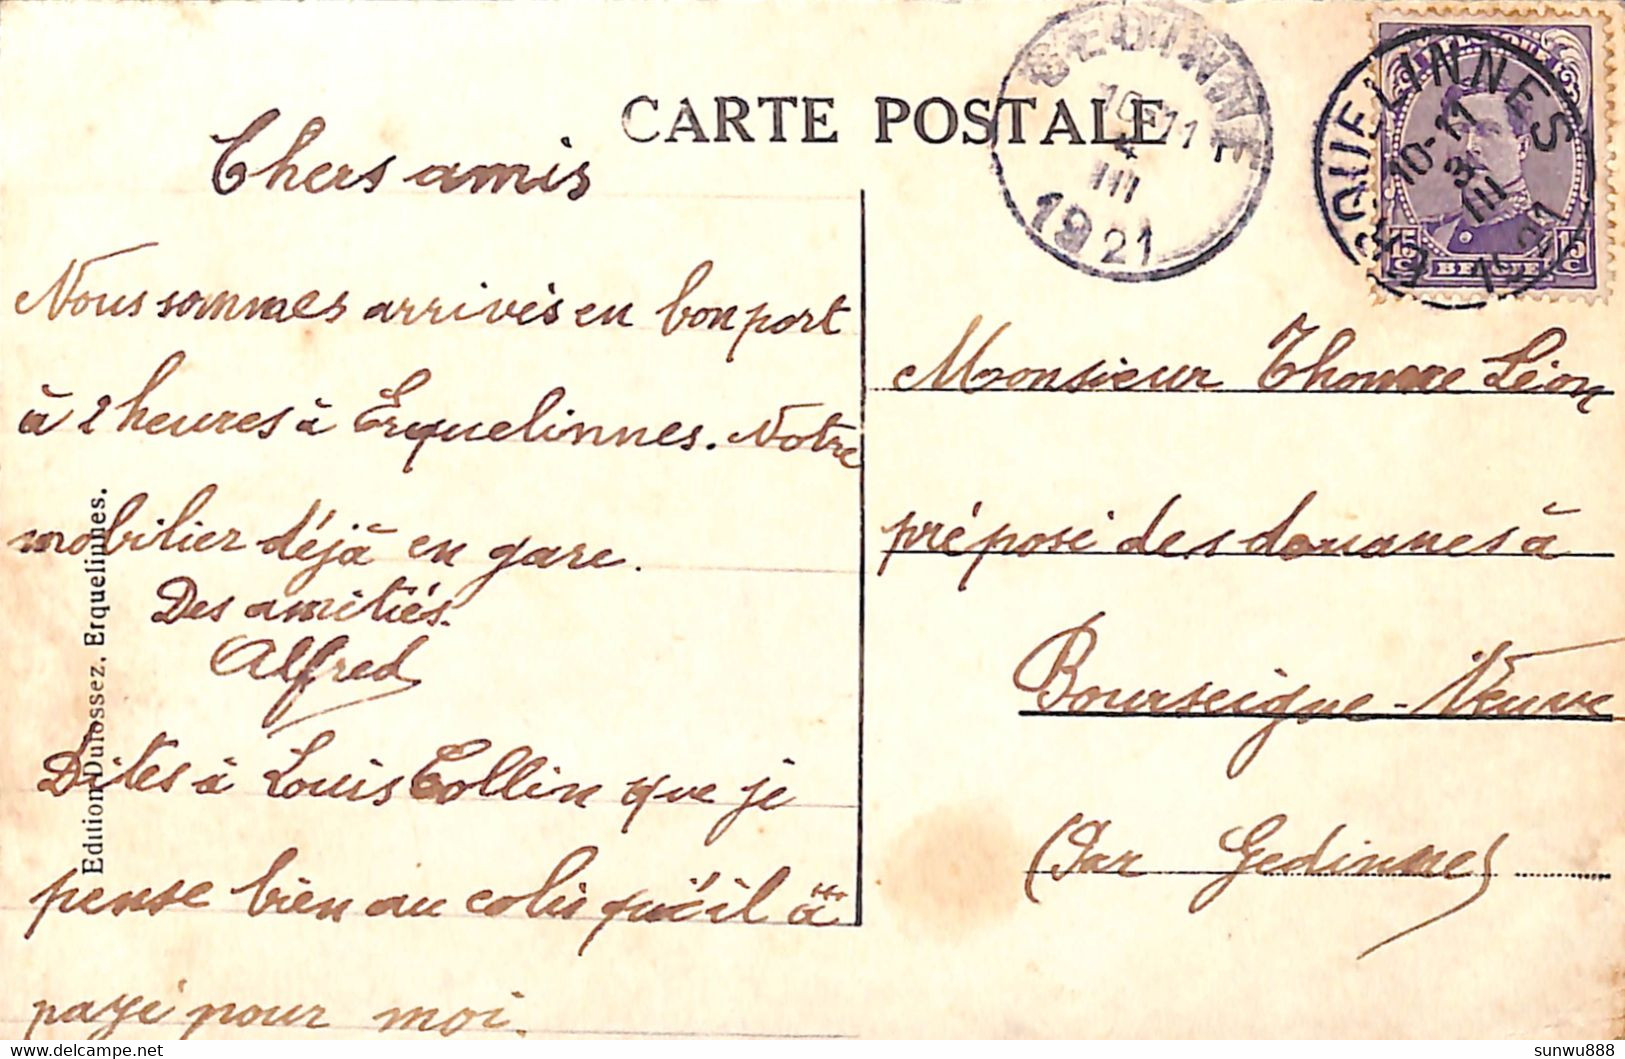 CARTE POSTALE
GEDINNE
10-11
4
III
1921
ERQUELINNES
10-11
3
III
1921
BELGIQUE
15 c 15 c
BELGIE
Chers amis
Nous sommes arrivés en bon port
à 2 heures à Erquelinnes. Notre
mobilier déjà en gare.
Des amitiés.
Alfred
Dites à Louis Collin que je
pense bien au colis qu'il à
payé pour moi.
Monsieur Thomme Léon
préposé des douanes à
Bourseigne-Neuve
(Par Gedinne)
Edition Dufossez, Erquelinnes.
sunwu888